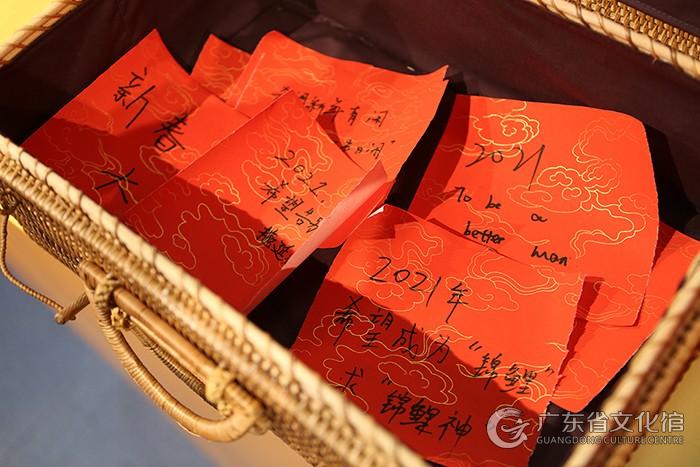 新
春
大
新年有闹
2021
希望
2021
To be a
better man
2021年
希望成为“锦鲤”
求“锦鲤神
广东省文化馆
GUANGDONG CULTURE CENTRE